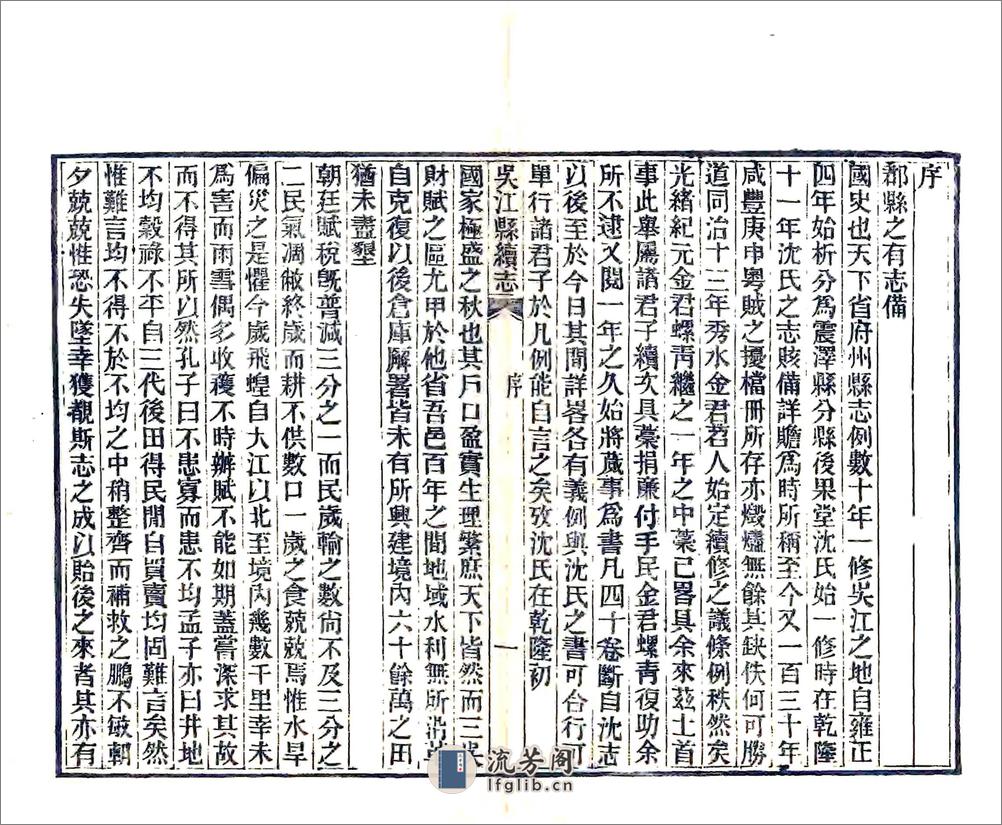 序
郡縣之有志備
國史也天下省府州縣志例數十年一修吳江之地自雍正
四年始析分爲震澤縣分縣後果堂沈氏始一修時在乾隆
十一年沈氏之志賅備詳贍爲時所稱至今又一百三十年
咸豐庚申粵賊之擾檔冊所存亦燬燼無餘其缺佚何可勝
道同治十三年秀水金君苕人始定續修之議條例秩然矣
光緒紀元金君螺靑繼之一年之中藁已畧具余來茲土首
事此舉屬諸君子續次具藁捐廉付手民金君螺靑復助余
所不逮又閱一年之久始將蕆事爲書凡四十卷斷自沈志
以後至於今日其閒詳畧各有義例與沈氏之書可合行可
單行諸君子於凡例能自言之矣攷沈氏在乾隆初
吳江縣續志 序 一
國家極盛之秋也其戶口盈實生理繁庶天下皆然而三吳
財賦之區尤甲於他省吾邑百年之間地域水利無所沿革
自克復以後倉庫廨署皆未有所興建境內六十餘萬之田
猶未盡墾
朝廷賦稅旣普減三分之一而民歲輸之數尙不及三分之
二民氣凋敝終歲而耕不供數口一歲之食兢兢焉惟水旱
偏災之是懼今歲飛蝗自大江以北至境內幾數千里幸未
爲害而雨雪偶多收穫不時辦賦不能如期蓋嘗深求其故
而不得其所以然孔子曰不患寡而患不均孟子亦曰井地
不均穀祿不平自三代後田得民閒自買賣均固難言矣然
惟難言均不得不於不均之中稍整齊而補救之鵬不敏朝
夕兢兢惟恐失墜幸獲覩斯志之成以貽後之來者其亦有
流芳阁
lfglib.cn